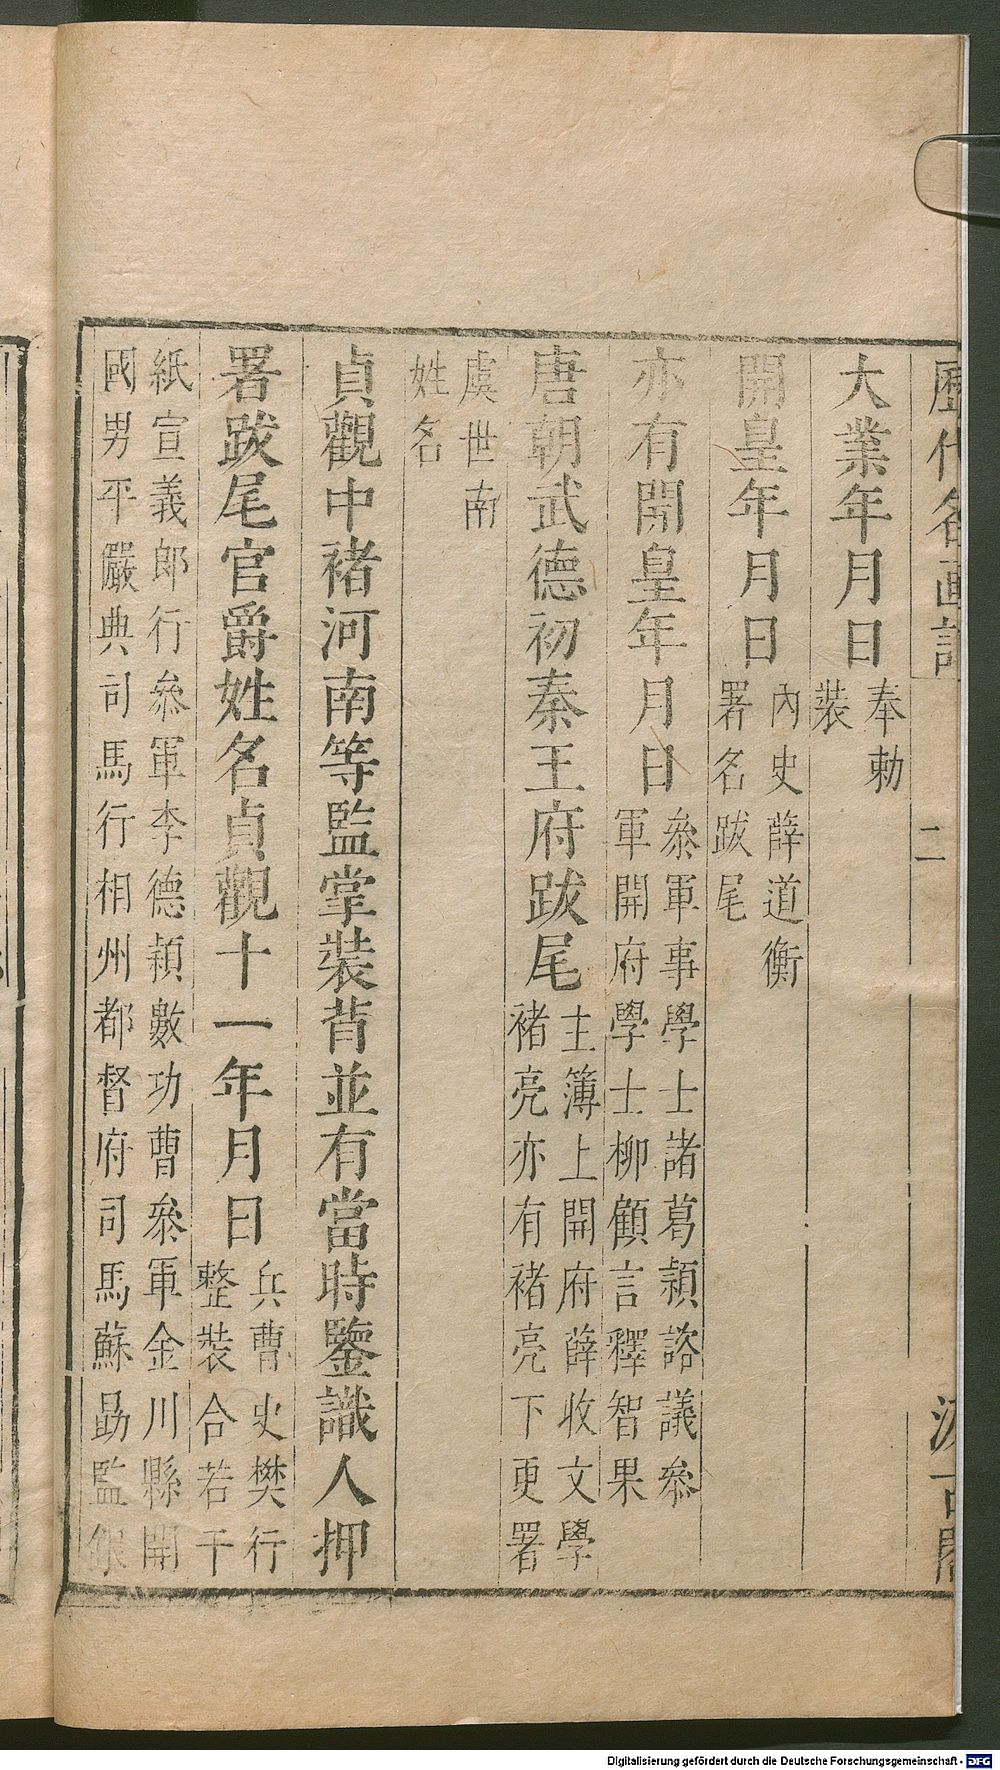 歷代名畫記
二
汲古閣
大業年月日奉勅
裝
開皇年月日內史薛道衡
署名跋尾
亦有開皇年月日叅軍事學士諸葛頴諮議叅
軍開府學士柳顧言釋智果
唐朝武德初秦王府跋尾主簿上開府薛收文學
褚亮亦有褚亮下更署
虞世南
姓名
貞觀中褚河南等監掌裝背並有當時鑒識人押
署跋尾官爵姓名貞觀十一年月日兵曹史樊行
整裝合若干
紙宣義郎行叅軍李德頴數功曹叅軍金川縣開
國男平儼典司馬行相州都督府司馬蘇勗監銀
Digitalisierung gefördert durch die Deutsche Forschungsgemeinschaft - DFG